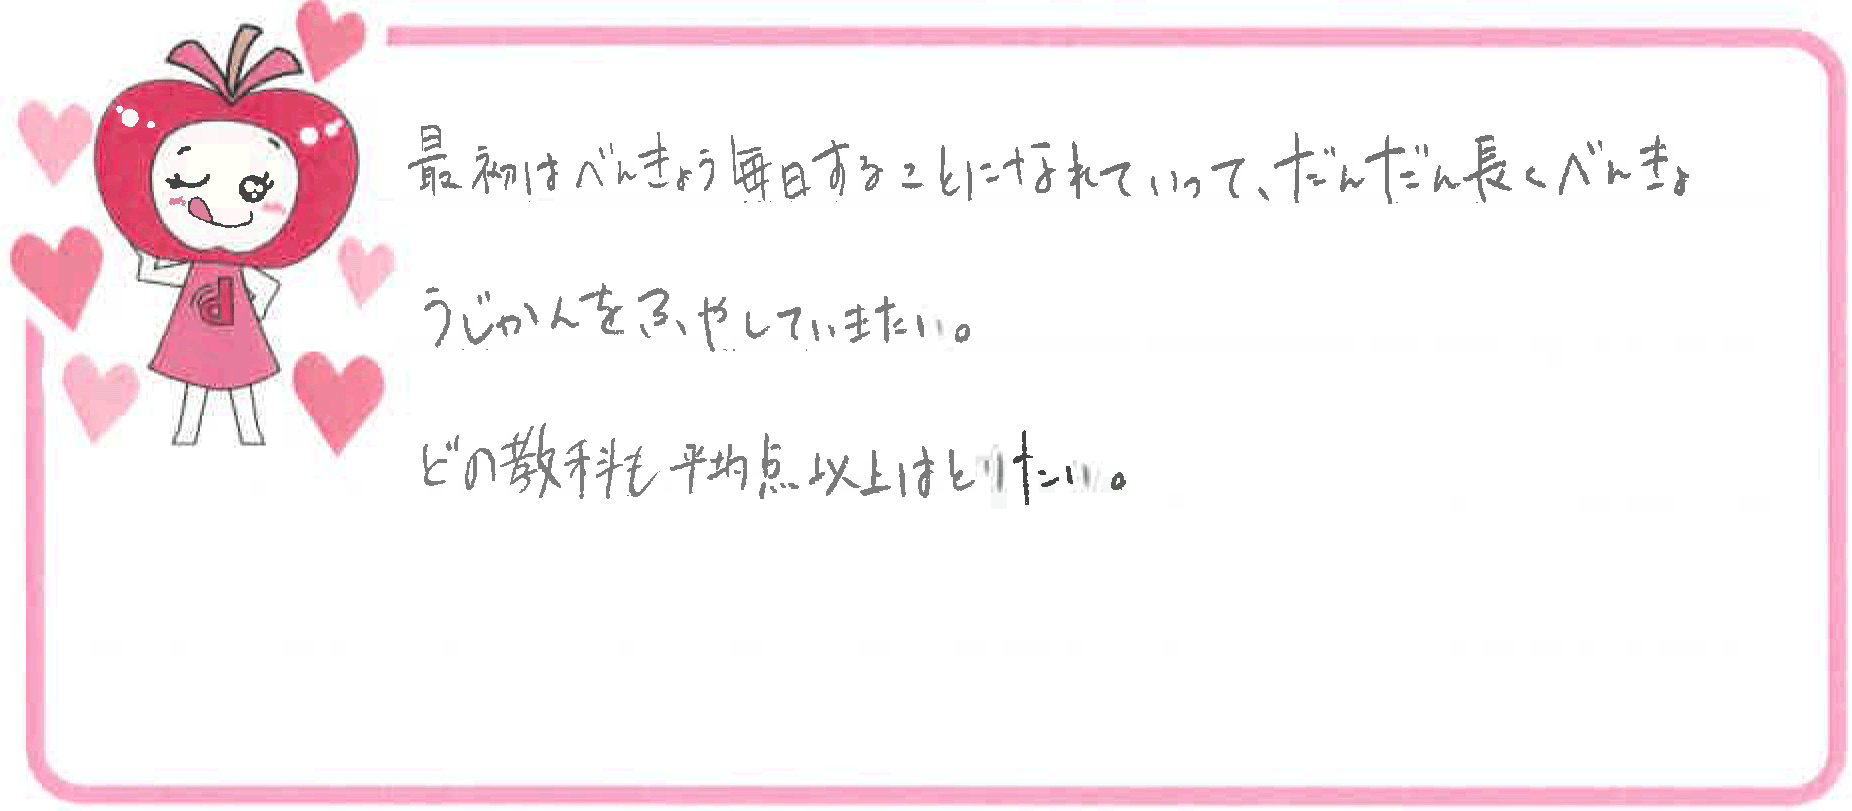 最初はべんきょう毎日することになれていって、だんだん長くべんきょ
うじかんをふやしていきたい。
どの教科も平均点以上はとりたい。